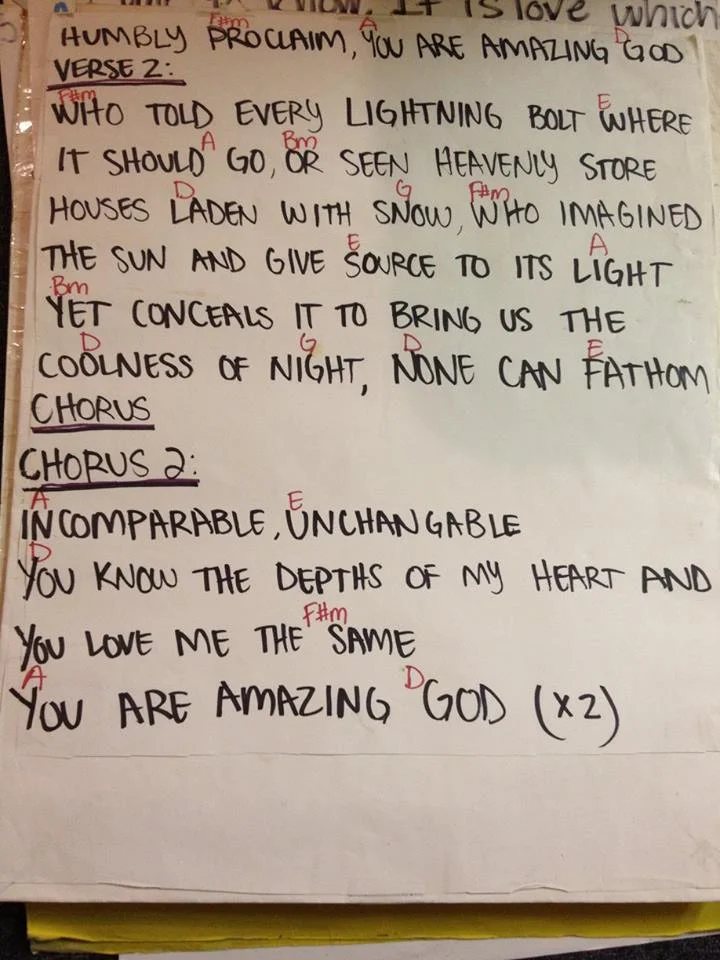 know. It is love which
F#m A D
HUMBLY PROCLAIM, YOU ARE AMAZING GOD
VERSE 2:
F#m E
WHO TOLD EVERY LIGHTNING BOLT WHERE
A Bm
IT SHOULD GO, OR SEEN HEAVENLY STORE
D G F#m
HOUSES LADEN WITH SNOW, WHO IMAGINED
E A
THE SUN AND GIVE SOURCE TO ITS LIGHT
Bm
YET CONCEALS IT TO BRING US THE
D G D E
COOLNESS OF NIGHT, NONE CAN FATHOM
CHORUS
CHORUS 2:
A E
INCOMPARABLE, UNCHANGABLE
D
YOU KNOW THE DEPTHS OF MY HEART AND
F#m
YOU LOVE ME THE SAME
A D
YOU ARE AMAZING GOD (x2)